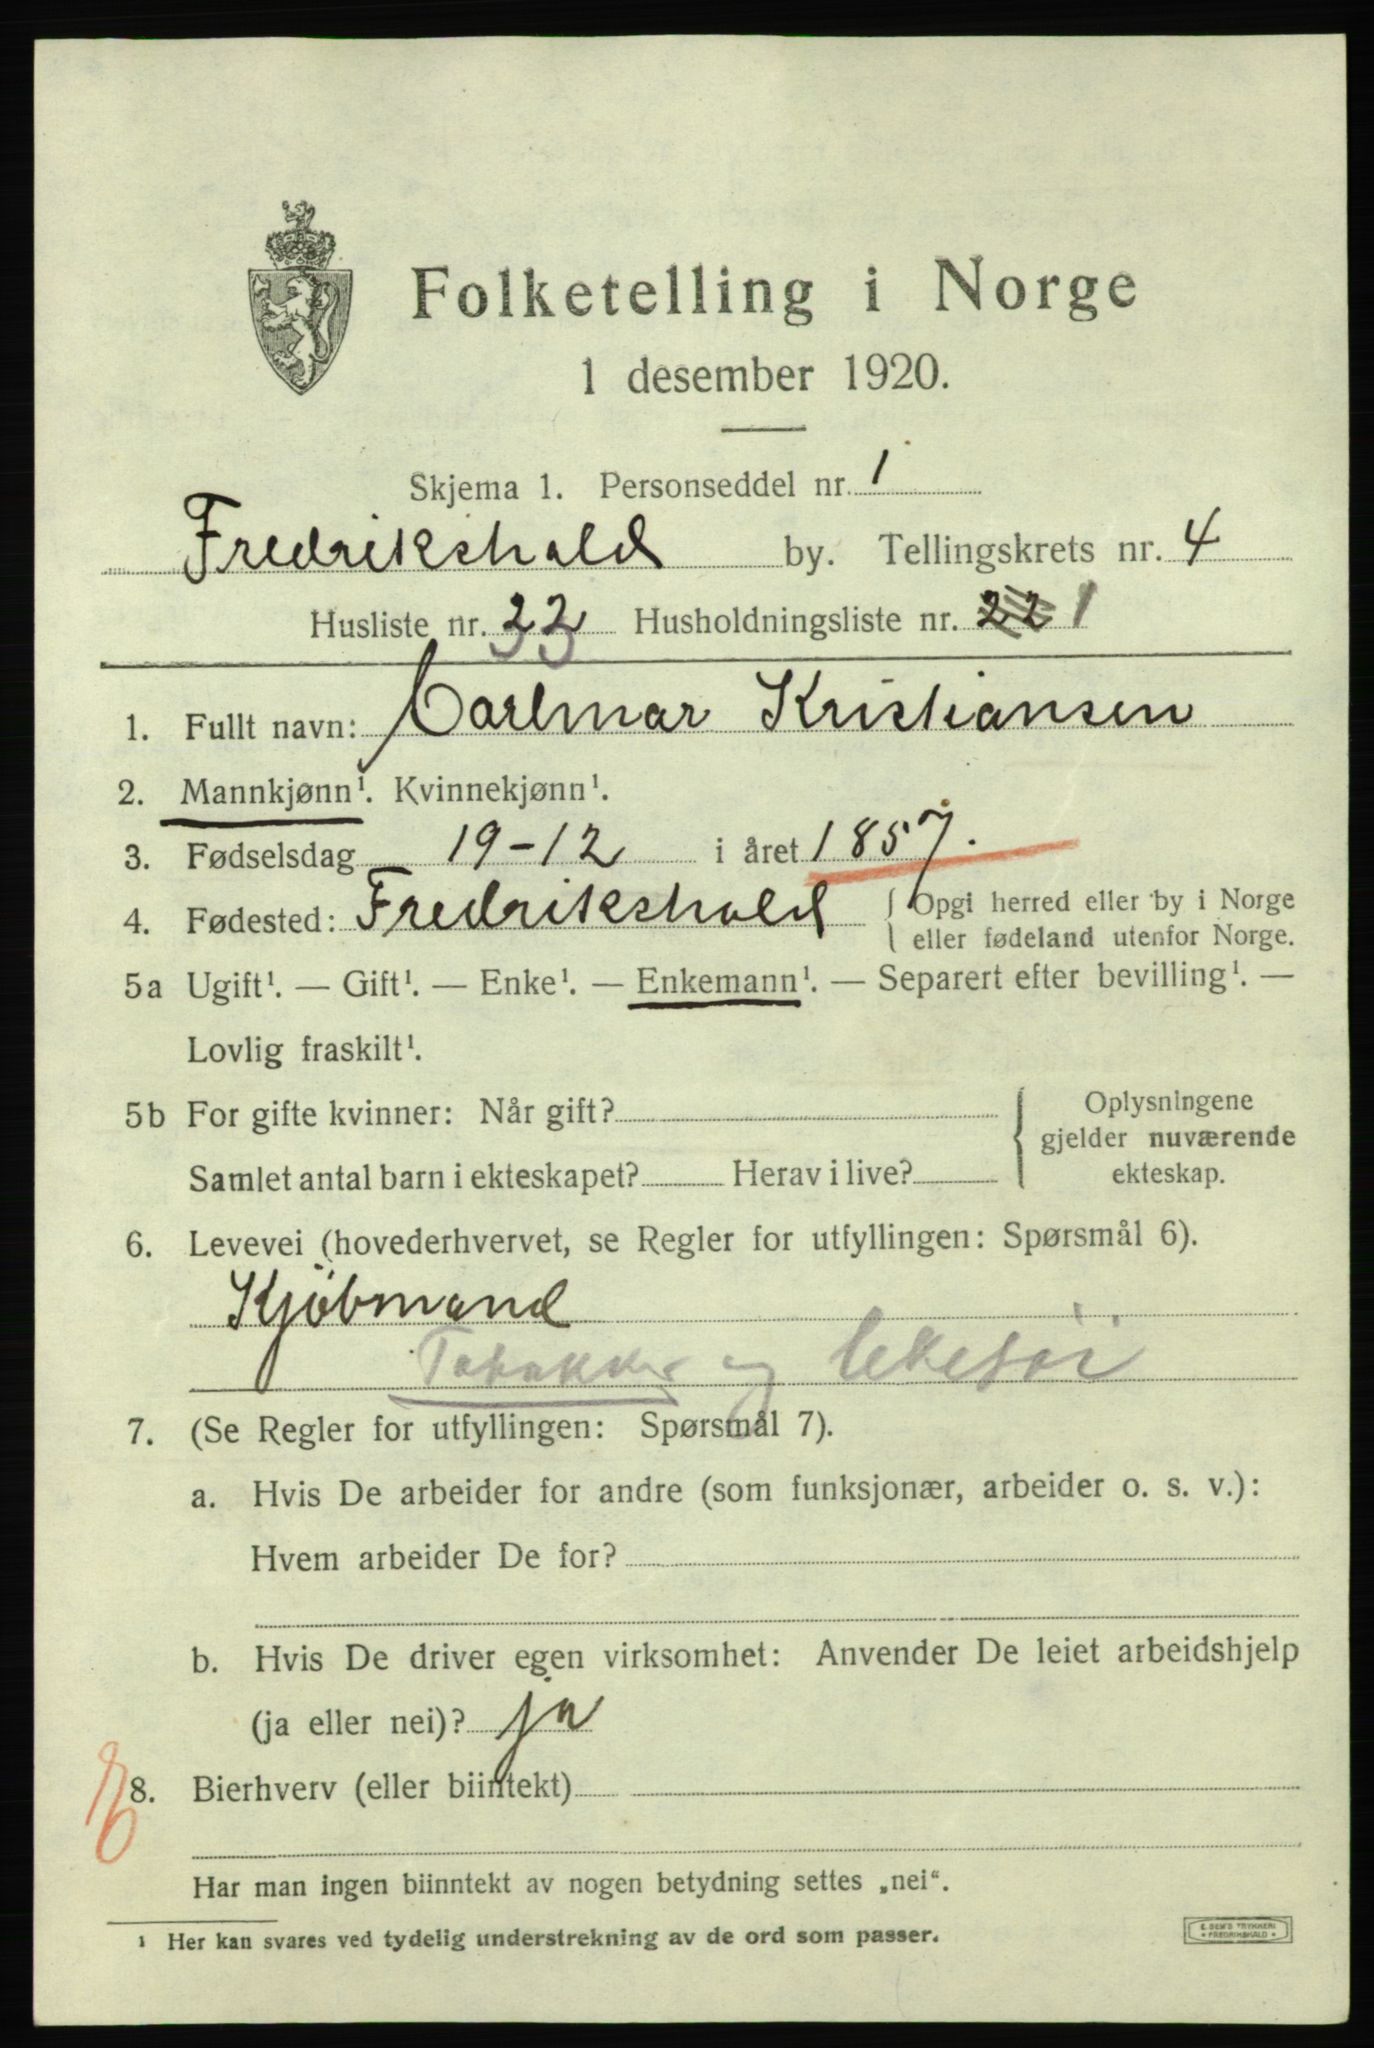 Folketelling i Norge
1 desember 1920.
Skjema 1. Personseddel nr. 1
Fredrikshald by. Tellingskrets nr. 4
Husliste nr. 33 Husholdningsliste nr. 22 1
1. Fullt navn: Carlmar Kristiansen
2. Mannkjønn¹. Kvinnekjønn¹.
3. Fødselsdag 19-12 i året 1857.
4. Fødested: Fredrikshald { Opgi herred eller by i Norge
eller fødeland utenfor Norge.
5a Ugift¹. — Gift¹. — Enke¹. — Enkemann¹. — Separert efter bevilling¹. —
Lovlig fraskilt¹.
5b For gifte kvinner: Når gift? { Oplysningene
gjelder nuværende
Samlet antal barn i ekteskapet? Herav i live? ekteskap.
6. Levevei (hovederhvervet, se Regler for utfyllingen: Spørsmål 6).
Kjöbmand
Tobakker og leketøi
7. (Se Regler for utfyllingen: Spørsmål 7).
a. Hvis De arbeider for andre (som funksjonær, arbeider o. s. v.):
Hvem arbeider De for?
b. Hvis De driver egen virksomhet: Anvender De leiet arbeidshjelp
(ja eller nei)? ja
8. Bierhverv (eller biinntekt)
Har man ingen biinntekt av nogen betydning settes „nei“.
¹ Her kan svares ved tydelig understrekning av de ord som passer.
E. SEM'S TRYKKERI
• FREDRIKSHALD •